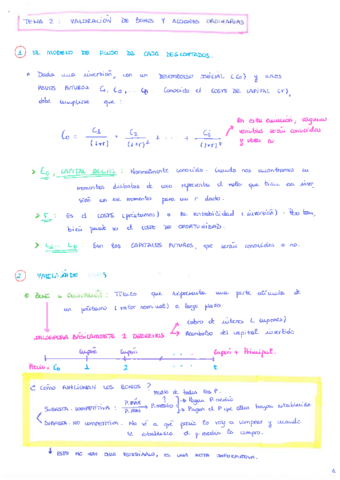 TEMA 2: VALORACIÓN DE BONOS Y ACCIONES ORDINARIAS
1 EL MODELO DE FLUJO DE CAJA DESCONTADOS.
Dada una inversión, con un DESEMBOLSO INICIAL (C0) y unos
FLUJOS FUTUROS C1, C2, ... Conocido el COSTE DE CAPITAL (r),
debe cumplirse que:
C0 = C1/(1+r) + C2/(1+r)² + ... + Ct/(1+r)ᵗ
En esta ecuación, algunas
variables serán conocidas
y otras no
C0, CAPITAL INICIAL: Normalmente conocido. Cuando nos encontramos en
momentos distintos de cero representa el valor que tiene una inver
sión en ese momento para un r dado.
r: Es el COSTE (préstamos) o la rentabilidad (inversión). Pero tam
bién puede ser el COSTE DE OPORTUNIDAD.
Son los CAPITALES FUTUROS, que serán conocidos o no.
2
Título que representa una parte alícuota de
un préstamo (valor nominal) a largo plazo
cobro de interés (cupones)
Reembolso del capital invertido
BÁSICAMENTE 2 DERECHOS
Cupón Cupón ... Cupón + Principal
C0 1 2 ... t
¿CÓMO ADQUIRIMOS LOS BONOS?
SUBASTA COMPETITIVA: P. MÁX P. medio
Pagan P. medio
Pagan el P que ellos hayan establecido
SUBASTA NO COMPETITIVA: No sé a qué precio lo voy a comprar y cuando
se establezca el p. medio lo compro.
ESTO NO HAY QUE ESTUDIARLO, ES UNA NOTA INFORMATIVA.